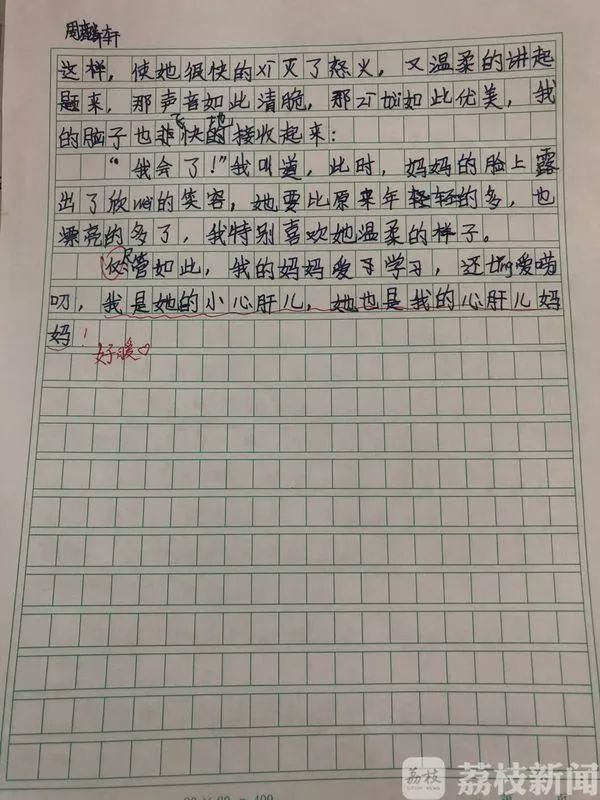 周麟轩
这样，使她很快的xī灭了怒火，又温柔的讲起
题来，那声音如此清脆，那zī tài如此优美，我
的脑子也飞快地接收起来：
“我会了！”我叫道，此时，妈妈的脸上露
出了欣wèi的笑容，她要比原来年轻的多，也
漂亮的多了，我特别喜欢她温柔的样子。
尽管如此，我的妈妈爱学习，还tǐng爱唠
叨，我是她的小心肝儿，她也是我的心肝儿妈
妈！
好暖♡
荔枝 荔枝新闻
20 × 20 = 400